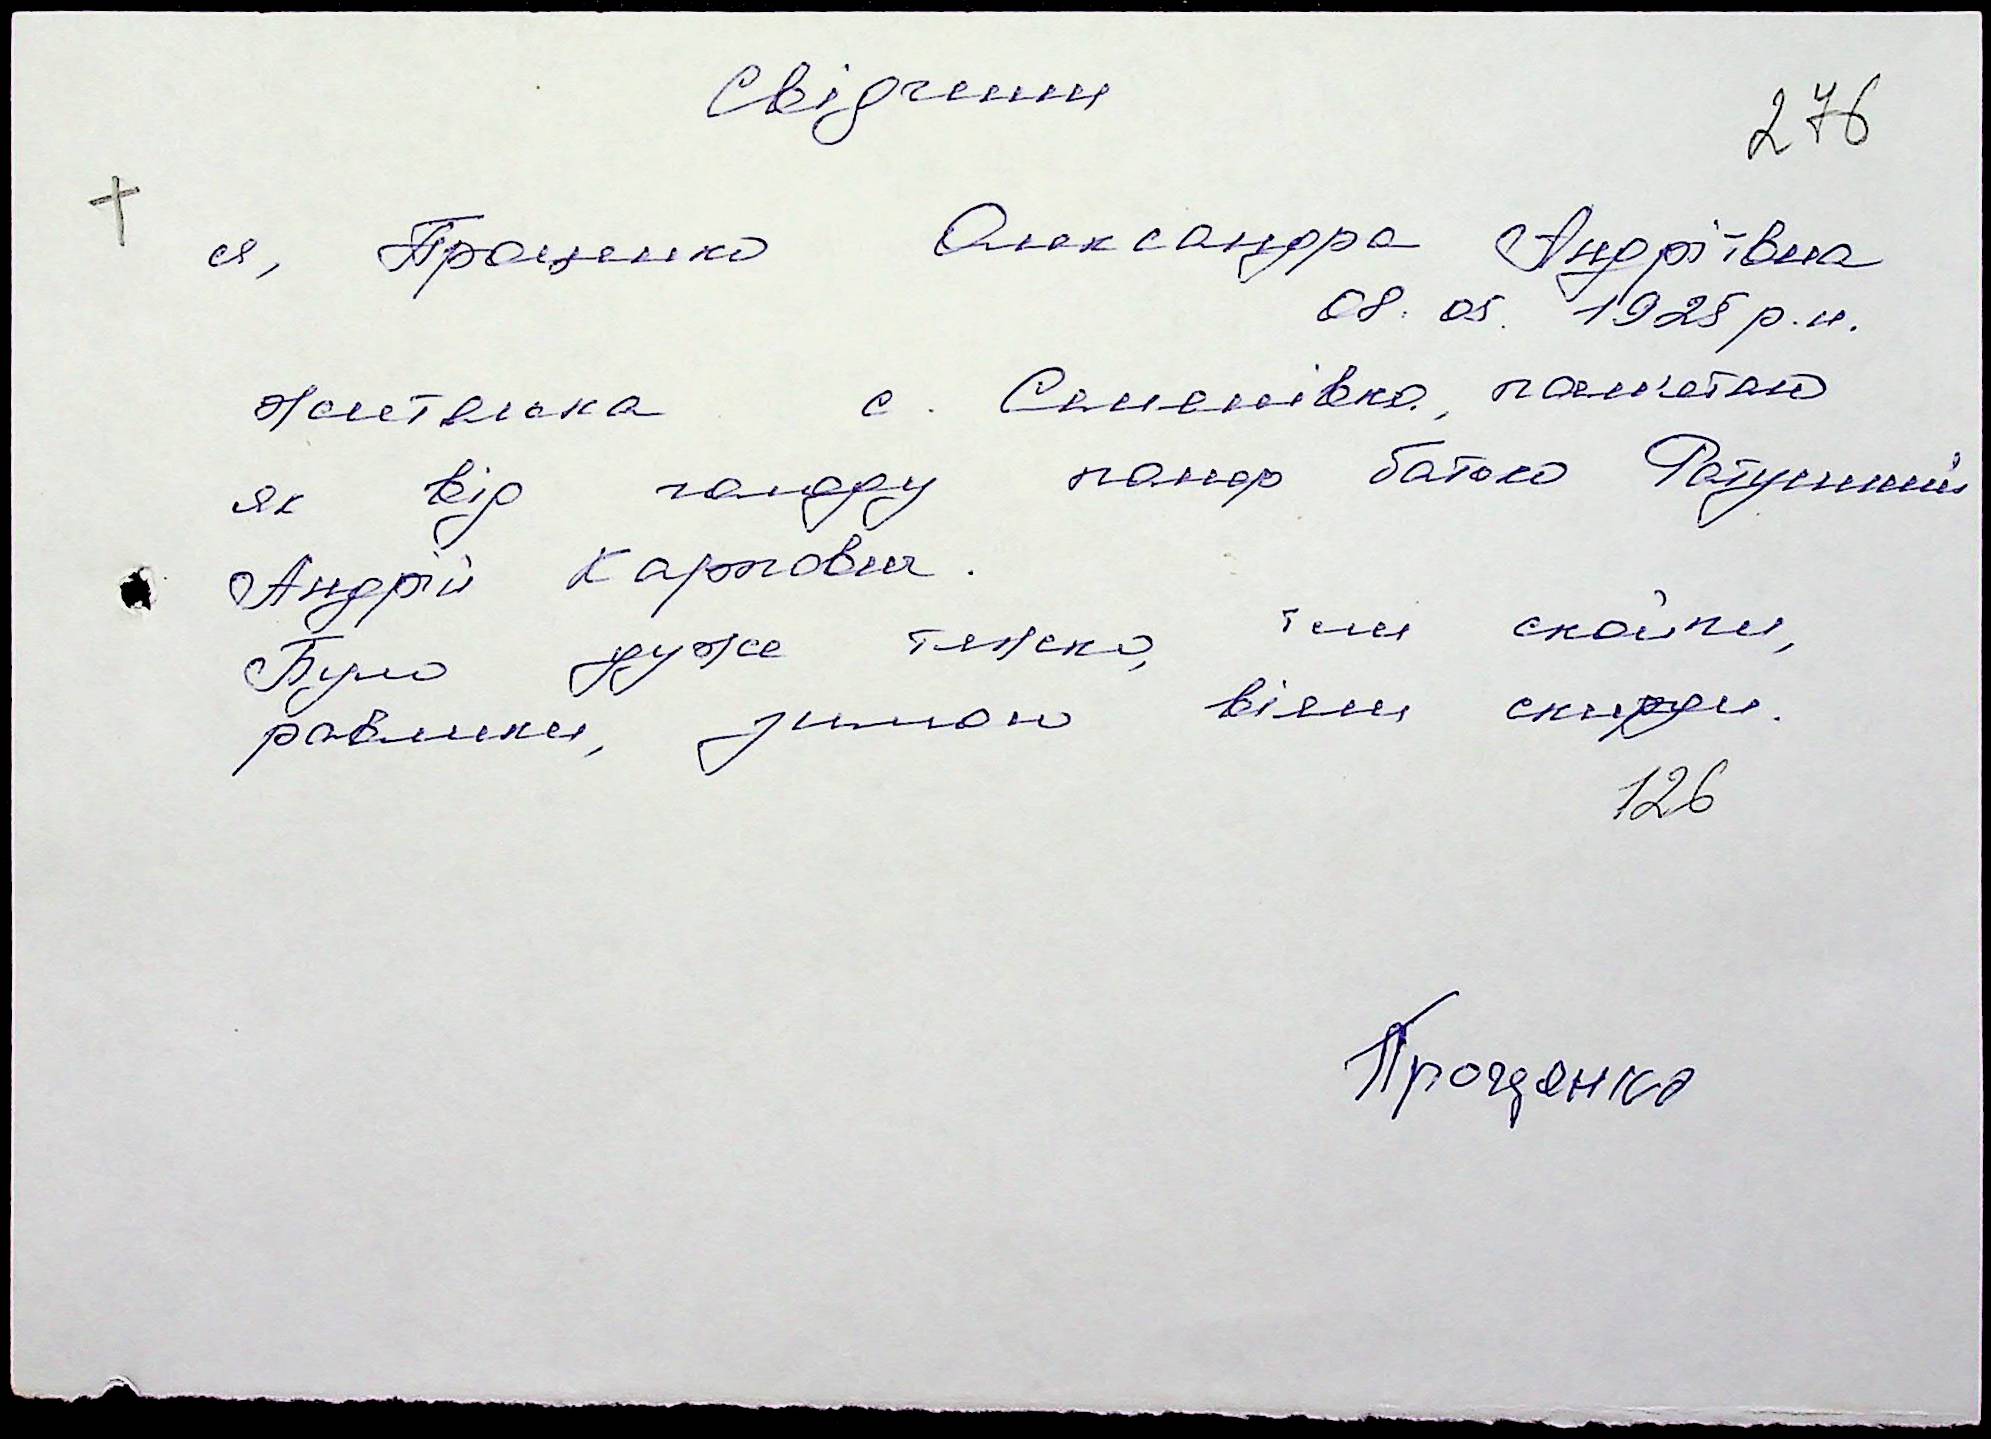 Свідчення
276
я, Проценко Олександра Андріївна
08. 05. 1925 р.н.
жителька с. Семенівка, пам'ятаю
як від голоду помер батько Ратушний
Андрій Карпович.
Було дуже тяжко, їли скойки,
равлики, зимою віяли скирди.
126
Проценко